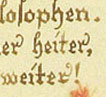 losophen.
er heiter,
weiter!